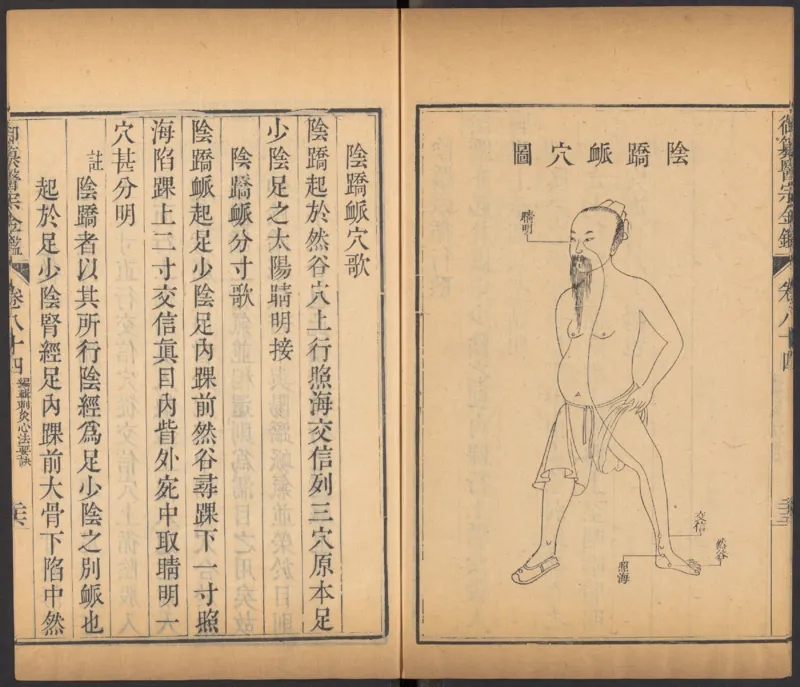 陰蹻䘑穴圖
睛明
交信
然谷
照海
御纂醫宗金鑑
卷八十四
陰蹻䘑穴歌
陰蹻起於然谷穴上行照海交信列三穴原本足
少陰足之太陽睛明接
陰蹻䘑分寸歌
陰蹻䘑起足少陰足內踝前然谷尋踝下一寸照
海陷踝上二寸交信眞目內眥外宛中取睛明六
穴甚分明
註
陰蹻者以其所行陰經爲足少陰之別䘑也
起於足少陰腎經足內踝前大骨下陷中然
御纂醫宗金鑑
卷八十四
編輯刺灸心法要訣